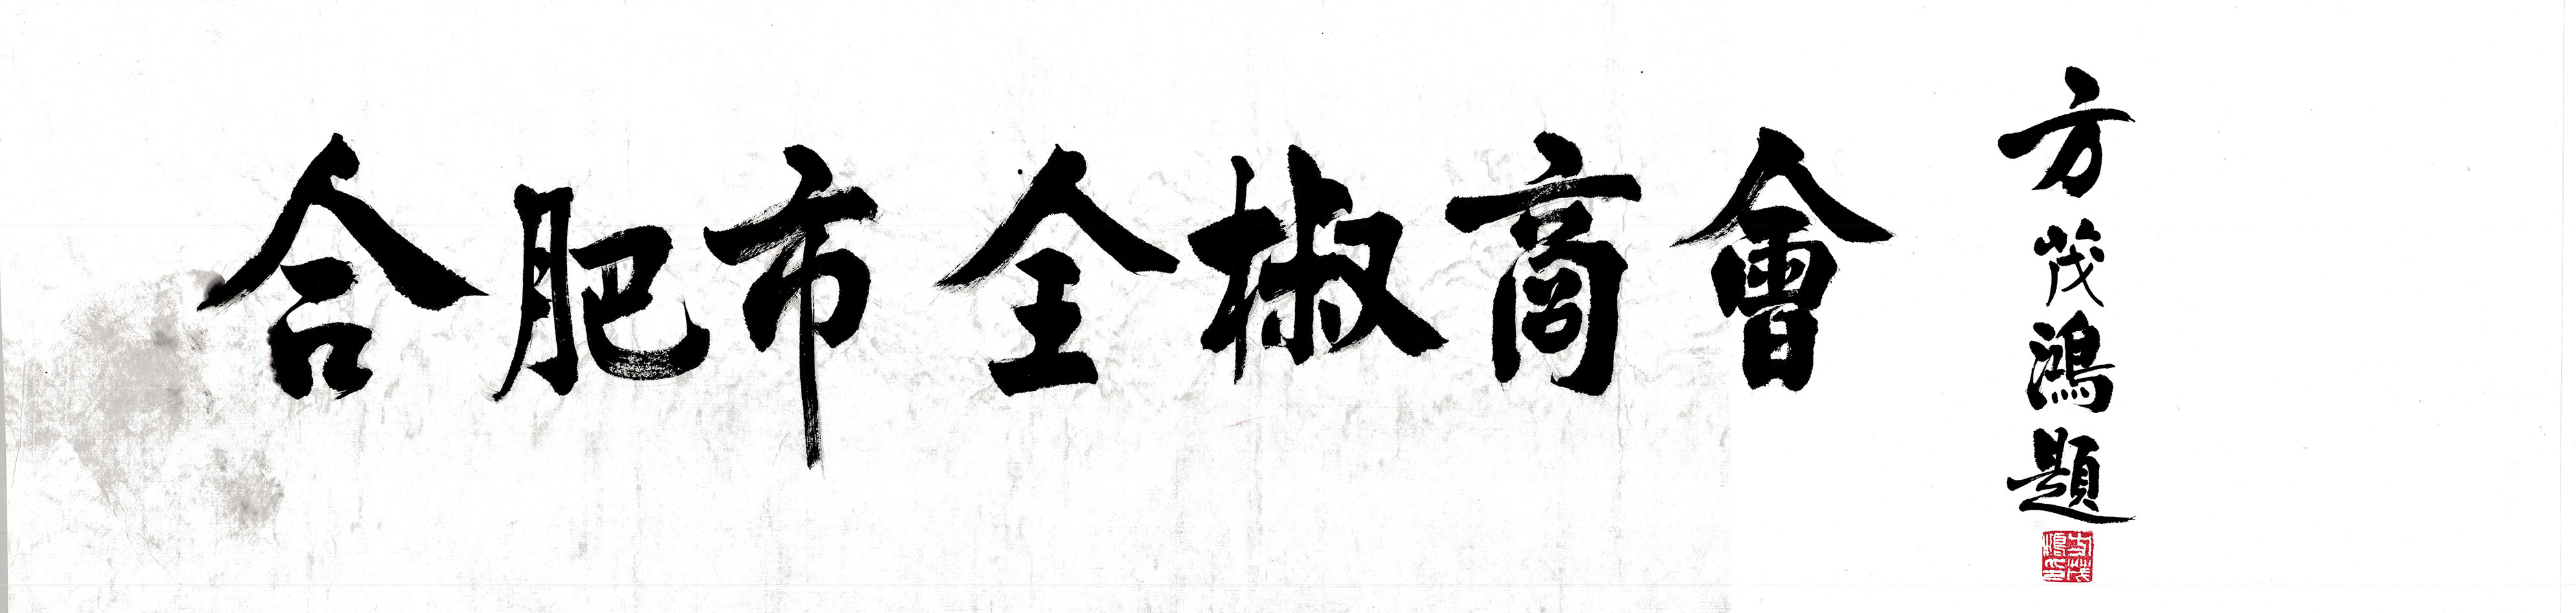 合肥市全椒商會
方茂鴻題
方茂鴻印